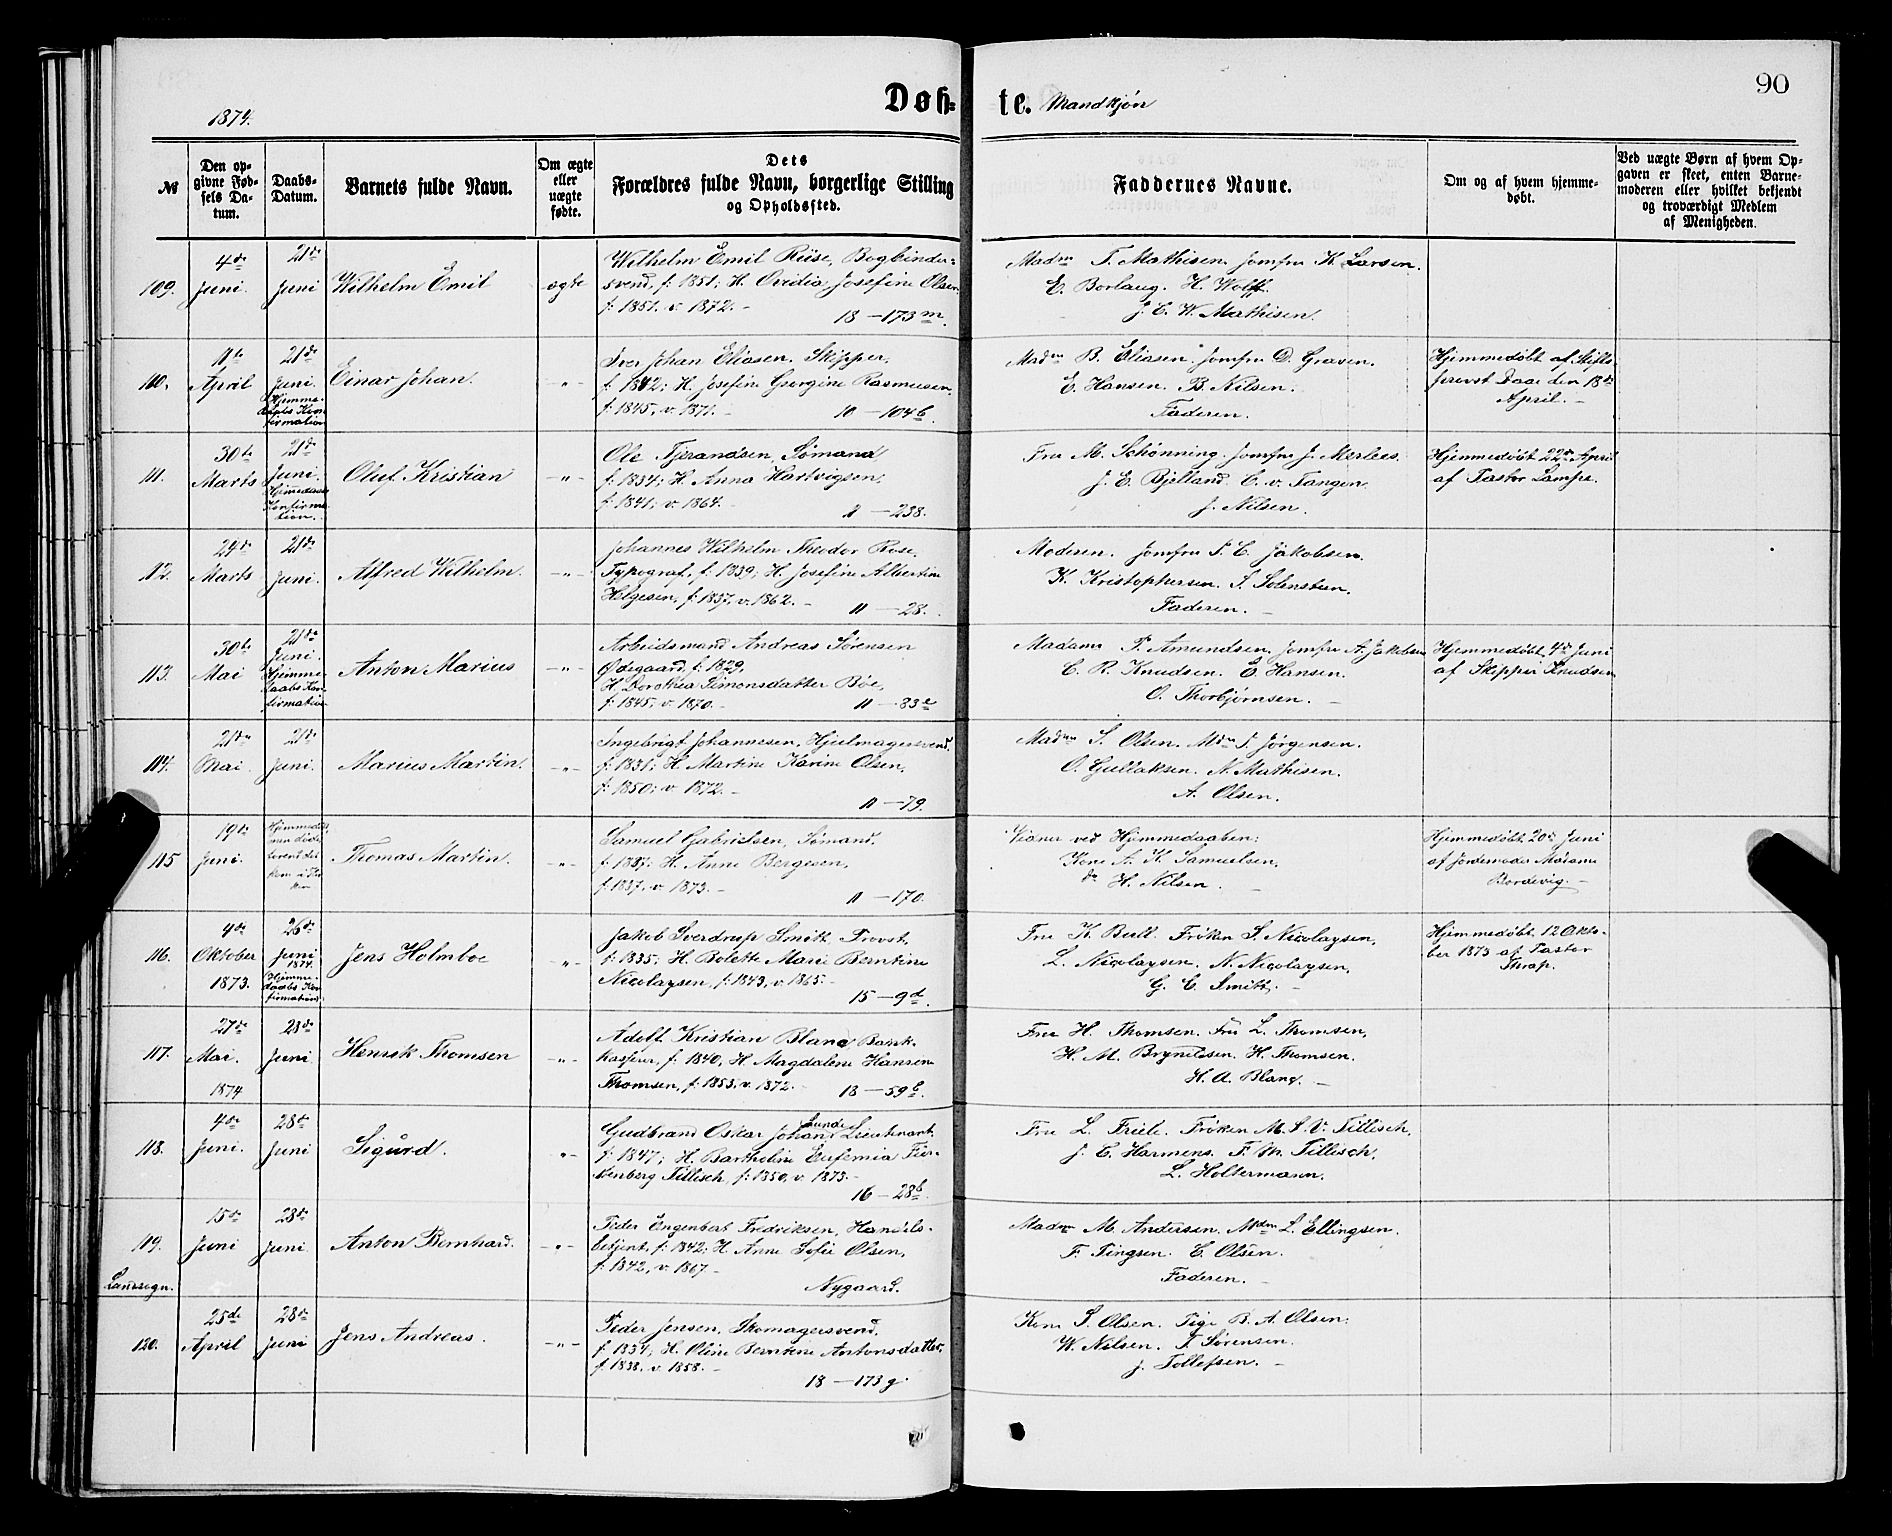 90
1874.
Døb- te. Mandkjøn
№
Den op-
givne Fød-
sels Da-
tum.
Daabs-
Datum.
Barnets fulde Navn.
Om ægte
eller
uægte
fødte.
Dets
Forældres fulde Navn, borgerlige Stilling
og Opholdssted.
Faddernes Navne.
Om og af hvem hjemme-
døbt.
Ved uægte Børn af hvem Op-
gaven er skeet, enten Barne-
moderen eller hvilket bekjendt
og troværdigt Medlem
af Menigheden.
109.
4de
Juni
21de
Juni
Wilhelm Emil
ægte
Wilhelm Emil Riise, Bogbinder-
svend, f: 1851; H. Ovidia Josefine Olsen
f: 1851. v. 1872. –
18 – 173 m.
Madm T. Mathisen. Jomfru K. Larsen.
E. Borlaug. H. Wolff.
J. C. W. Mathisen.
110.
11te
April
21de
Juni.
Hjemme-
daabs Kon-
firmation
Einar Johan.
– " –
Iver Johan Eliasen. Skipper,
f: 1842; H. Josefine Georgine Rasmussen
f: 1845, v. 1871. –
10 – 104 b.
Madm B. Eliasen. Jomfru D. Graven.
E. Hansen. B. Nilsen.
Faderen.
Hjemmedøbt af Stifts-
provst Daae den 18de
April. –
111.
30te
Marts
21de
Juni.
Hjemmedaabs
Konfirma-
tion.
Oluf Kristian
– " –
Ole Tjerandsen, Sømand
f: 1834; H. Anna Hartvigsen,
f: 1841; v. 1864. –
2 – 238.
Fru M. Schønning. Jomfru J. Merlees.
J. E. Bjelland. C. v. Tangen.
J. Nilsen.
Hjemmedøbt 22de April
af Pastor Lampe.
112.
24de
Marts
21de
Juni.
Alfred Wilhelm.
– " –
Johannes Wilhelm Theodor Rose,
Typograf, f: 1839; H. Josefine Albertine
Helgesen, f: 1837, v. 1862. –
11 – 28.
Moderen. Jomfru S. C. Jakobsen.
K. Kristophersen. S. Solensteen.
Faderen. –
113.
30te
Mai
21de
Juni.
Hjemme-
daabs Kon-
firmation
Anton Marius
– " –
Arbeidsmand Andreas Sørensen
Ødegaard, f: 1829,
H. Dorothea Simonsdatter Bøe,
f: 1845, v. 1870. –
11 – 33 e
Madame P. Amundsen. Jomfru A. Jakobsen
C. R. Knudsen. E. Hansen.
O. Thorbjørnsen. –
Hjemmedøbt 4de Juni
af Skipper Knudsen
114.
21de
Mai
21de
Juni.
Marius Martin.
– " –
Ingebrigt Johannesen, Hjulmagersvend.
f: 1831; H. Martine Karine Olsen,
f: 1850; v. 1872. –
11 – 79.
Madm S. Olsen. Mdm S. Jørgensen.
O. Gullaksen. N. Mathisen.
A. Olsen.
115
19de
Juni.
Thomas Martin.
– " –
Samuel Gabrielsen, Sømand.
f: 1837; H. Anne Bergesen,
f: 1837. v. 1873. –
11 – 170.
Vidner ved Hjemmedaaben:
Kone A. K. Samuelsen,
do H. Nilsen. –
Hjemmedøbt 20de Juni
af Jordemoder Madame
Bordevig. –
116.
4de
Oktober
1873.
26de
Juni
1874.
Hjemme-
daabs Kon-
firmation
Jens Holmboe
– " –
Jakob Sverdrup Smith, Provst,
f: 1835; H. Bolette Marie Berntine
Nicolaysen, f: 1843, v. 1865. –
15 – 9 d.
Fru K. Bull. Frøken S. Nicolaysen,
L. Nicolaysen. N. Nicolaysen,
G. C. Smitt. –
Hjemmedøbt 12 Okto-
ber 1873 af Pastor
Thrap.
117.
27de
Mai.
1874
28de
Juni
Henrik Thomsen
– " –
Adolf Kristian Blanc Bank-
kasserer, f: 1840, H. Magdalene Hansine
Thomsen, f: 1853, v. 1872. –
18 – 59 b.
Fru H. Thomsen. Fru L. Thomsen,
H. M. Brynildsen. H. Thomsen.
H. A. Blanc. –
118.
4de
Juni.
28de
Juni
Sigurd.
– " –
Gudbrand Oskar Johan Lunde Lieutnant.
f: 1847; H. Bartholine Eufemia
Tillisch, f: 1850, v. 1873. –
16 – 28 b.
Fru L. Friele. Frøken M. S. V. Tillisch,
J. C. Harmens. F. M. Tillisch,
L. Holtermann.
119.
Landsogn.
15de
Juni
28de
Juni.
Anton Bernhard.
– " –
Peder Engenbret Fredriksen, Handels-
betjent, f: 1842; H. Anne Sofie Olsen,
f: 1842, v. 1867. –
Nygaard.
Madm M. Andersen. Mdm L. Ellingsen.
F. Tingsen. C. Olsen.
Faderen. –
120.
25de
April
28de
Juni
Jens Andreas.
– " –
Peder Jensen, Skomagersvend,
f. 1834; H. Oline Berntine Antonsdatter,
f. 1838. v. 1858. –
18 – 173 g.
Kone S. Olsen. Pige B. A. Olsen.
W. Nilsen. S. Sørensen.
J. Tollefsen. –